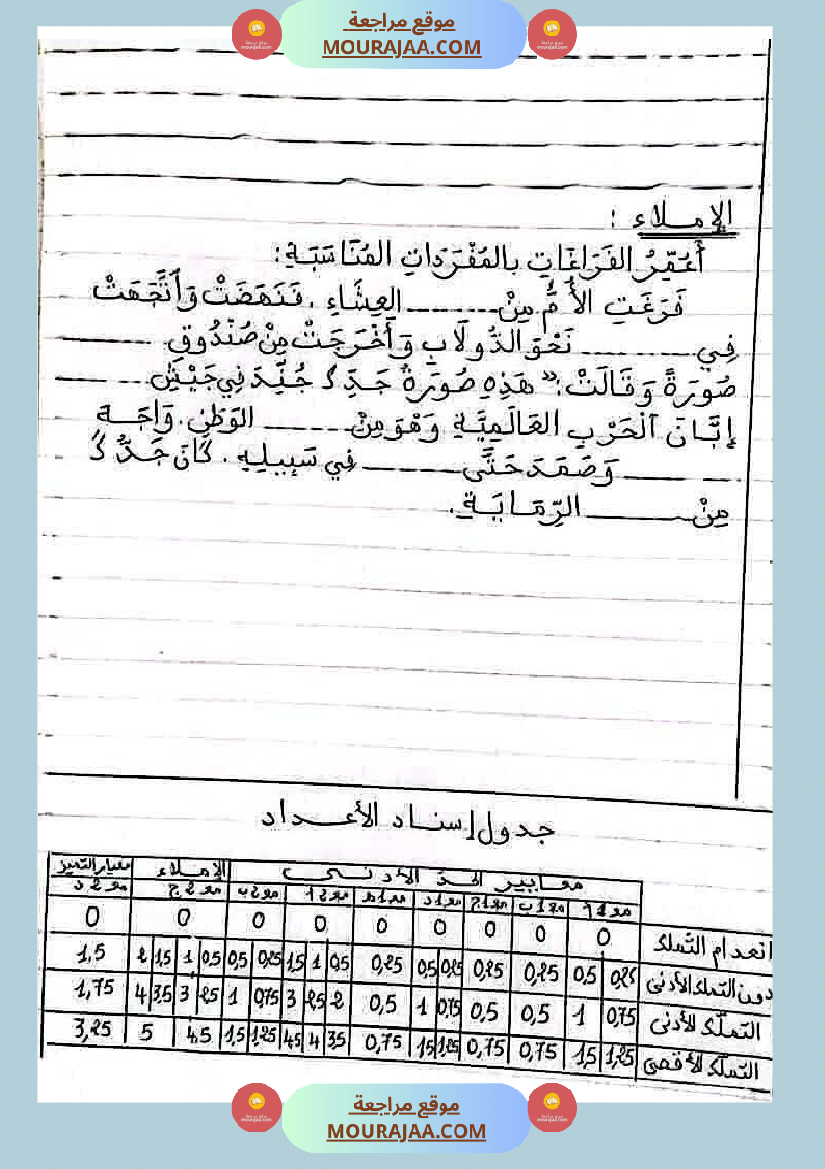 موقع مراجعة
MOURAJAA.COM
الإملاء :
أُعَمِّرُ الفَرَاغَاتِ بِالمُفْرَدَاتِ المُنَاسَبَةِ :
فَرَغَتِ الأُمُّ مِنْ ........ العِشَاءِ . فَنَهَضَتْ وَاتَّجَهَتْ
فِي ........ نَحْوَ الدُّولَابِ وَأَخْرَجَتْ مِنْ صُنْدُوقٍ ........
صُورَةً وَقَالَتْ : " هَذِهِ صُورَةُ جَدِّكَ جُنِّدَ فِي جَيْشِ ........
إِبَّانَ الْحَرْبِ العَالَمِيَّةِ وَهْوَ مِنْ ........ الوَطَنِ . وَاجَهَ
........ وَصَمَدَ حَتَّى ........ فِي سَبِيلِهِ . كَانَ جَدُّكَ
مِنْ ........ الرِّمَايَةِ .
جدول إسناد الأعداد
معايير الحدّ الأدنى الإملاء معيار التميز
مع1أ مع1ب مع1ج مع1د مع1ه مع2أ مع2ب مع2ج مع2د
انعدام التملك 0 0 0 0 0 0 0 0 0
دون التملك الأدنى 0,25 0,5 0,25 0,25 0,25 0,5 0,25 0,5 1 1,5 0,25 0,5 0,5 1 1,5 2 1,5
التملّك الأدنى 0,75 1 0,5 0,5 0,75 1 0,5 2 2,5 3 0,75 1 2,5 3 3,5 4 1,75
التملّك الأقصى 1,25 1,5 0,75 0,75 1,25 1,5 0,75 3,5 4 4,5 1,25 1,5 4,5 5 3,25
موقع مراجعة
MOURAJAA.COM